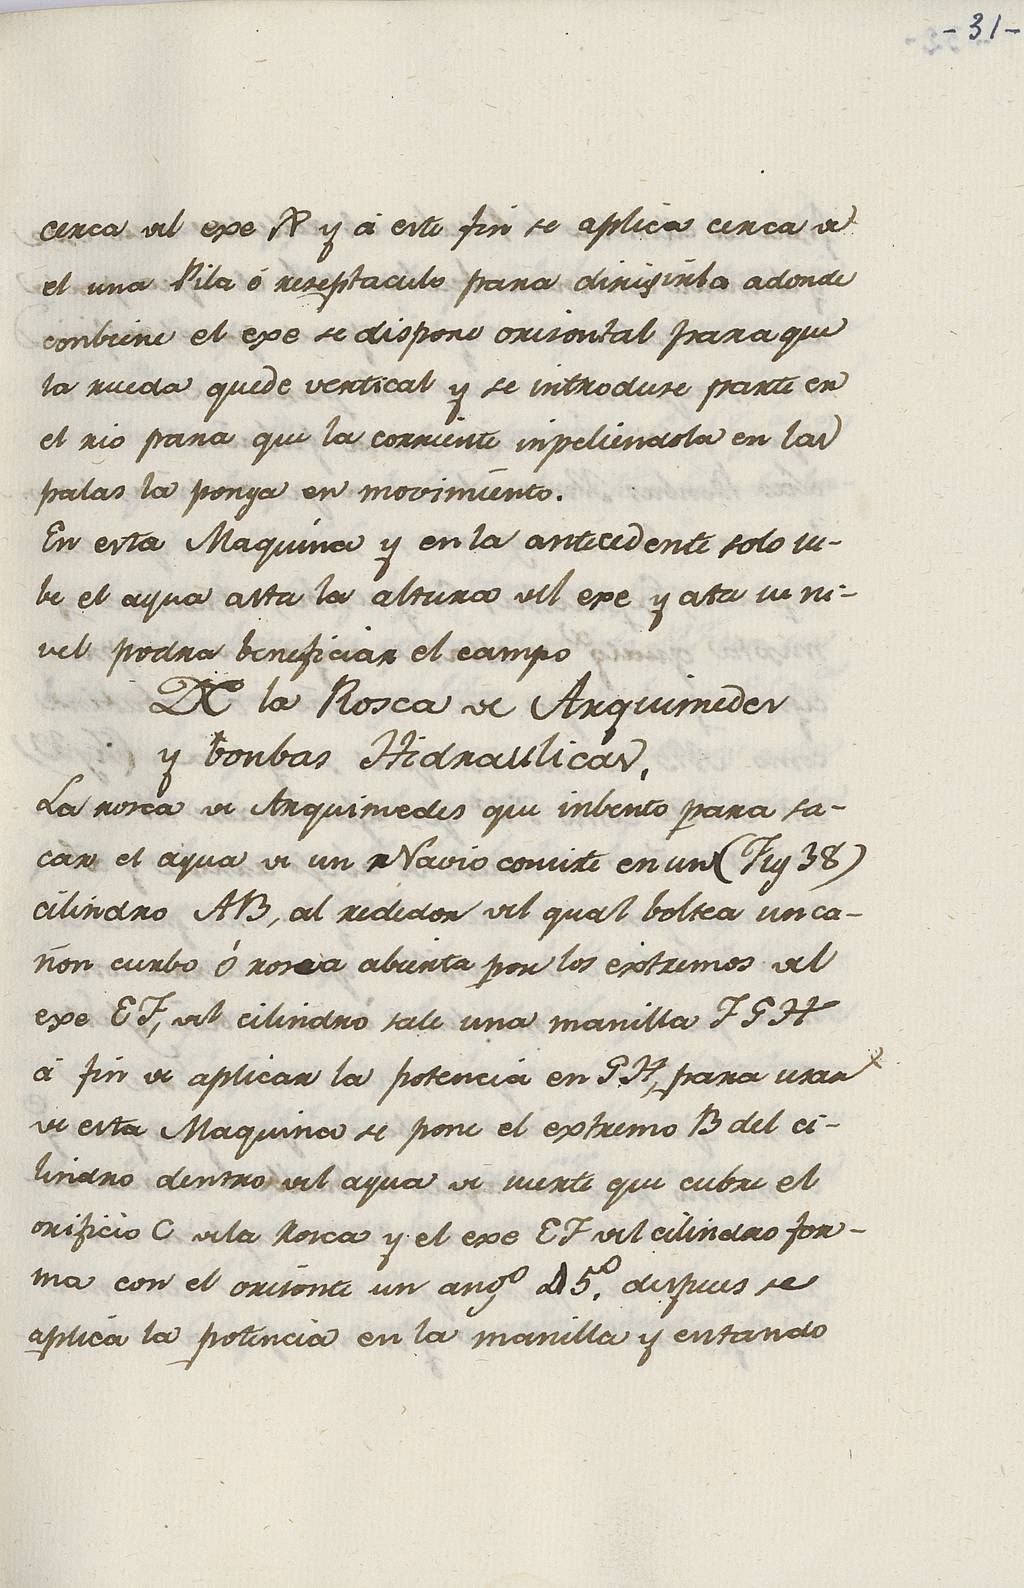 -31-
cerca del exe A y á este fin se aplica cerca de
el una Pila ó reseptaculo para dirigirla adonde
conbiene el exe se dispone orisontal para que
la rueda quede vertical y se introduse parte en
el rio para que la corriente inpeliendola en las
palas la ponga en movimiento.
En esta Maquina y en la antecedente solo su-
be el agua asta la altura del exe y asta su ni-
vel podra beneficiar el campo
De la Rosca de Arquimedes
y bonbas Hidraulicas,
La rosca de Arquimedes que inbento para sa-
car el agua de un Navio consiste en un (Fig 38)
cilindro AB, al rededor del qual boltea un ca-
ñon curbo ó rosca abierta por los extremos del
exe EF, del cilindro sale una manilla FGH
á fin de aplicar la potencia en GH, para usar
de esta Maquina se pone el extremo B del ci-
lindro dentro del agua de suerte que cubre el
orificio C de la Rosca y el exe EF del cilindro for-
ma con el orisonte un ango 5.o despues se
aplica la potencia en la manilla y entando